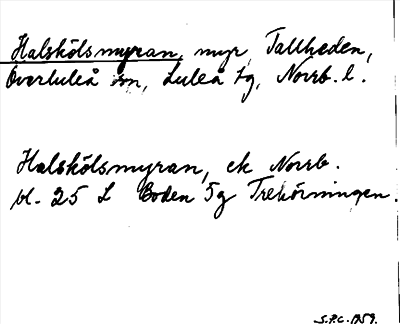 Halskölsmyran, myr, Tallheden,
Överluleå sn, Luleå tg, Norrb. l.
Halskölsmyran, ek Norrb.
bl. 25 L Boden 5g Trekörningen.
S.P.C. 1959.